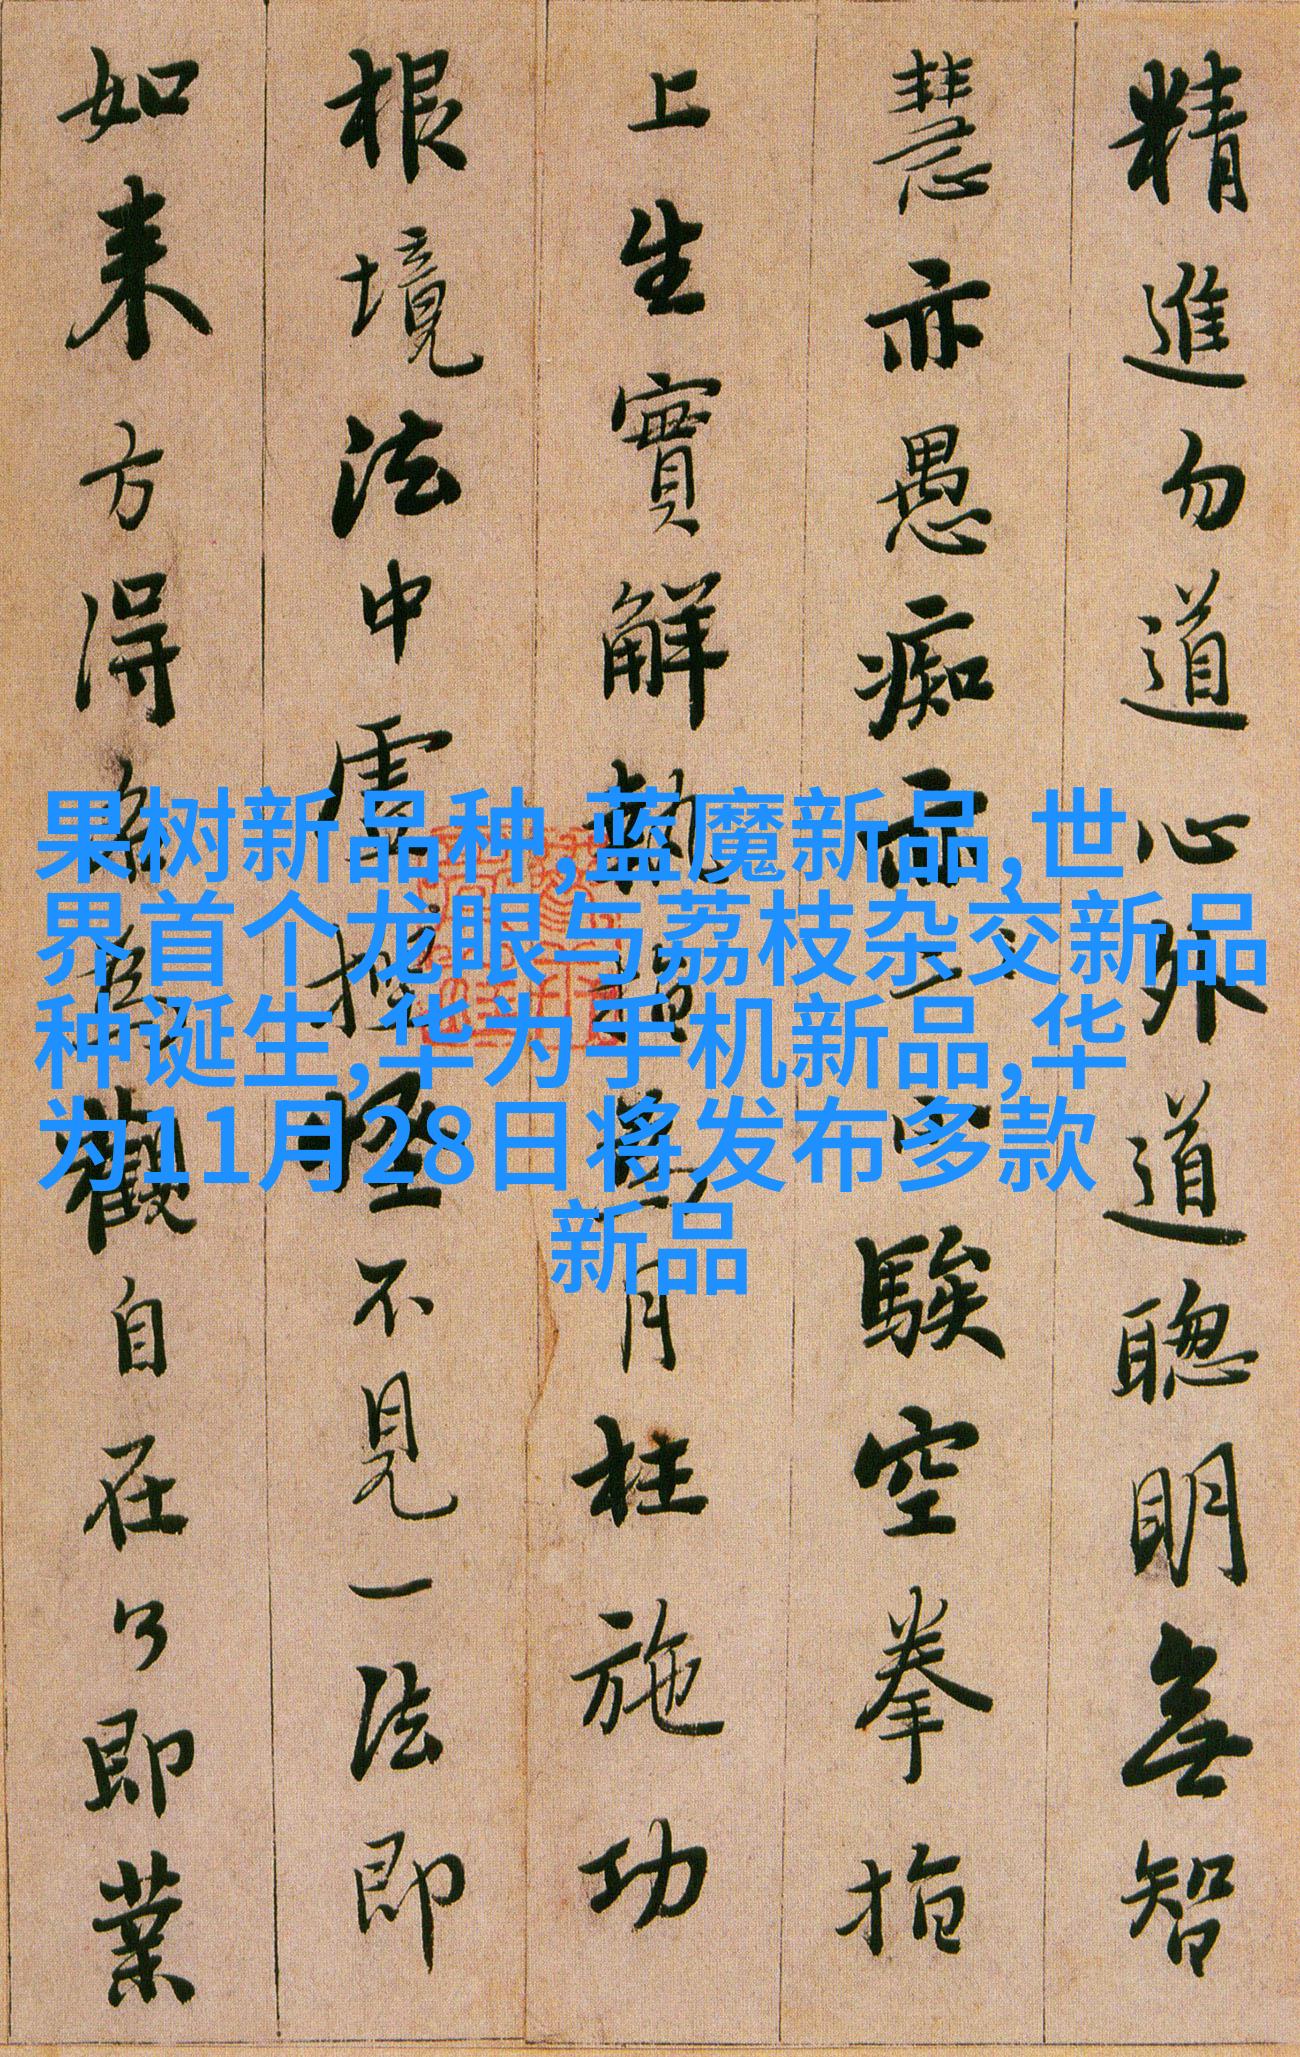 精進勿道心外道聰明無智
慧亦愚痴亦小騃空拳指
上生實解執指為月枉施功
根境法中虛捏怪不見一法即
如来方得名為觀自在了即業
果树新品种,蓝魔新品,世
界首个龙眼与荔枝杂交新品
种诞生,华为手机新品,华
为11月28日将发布多款
新品